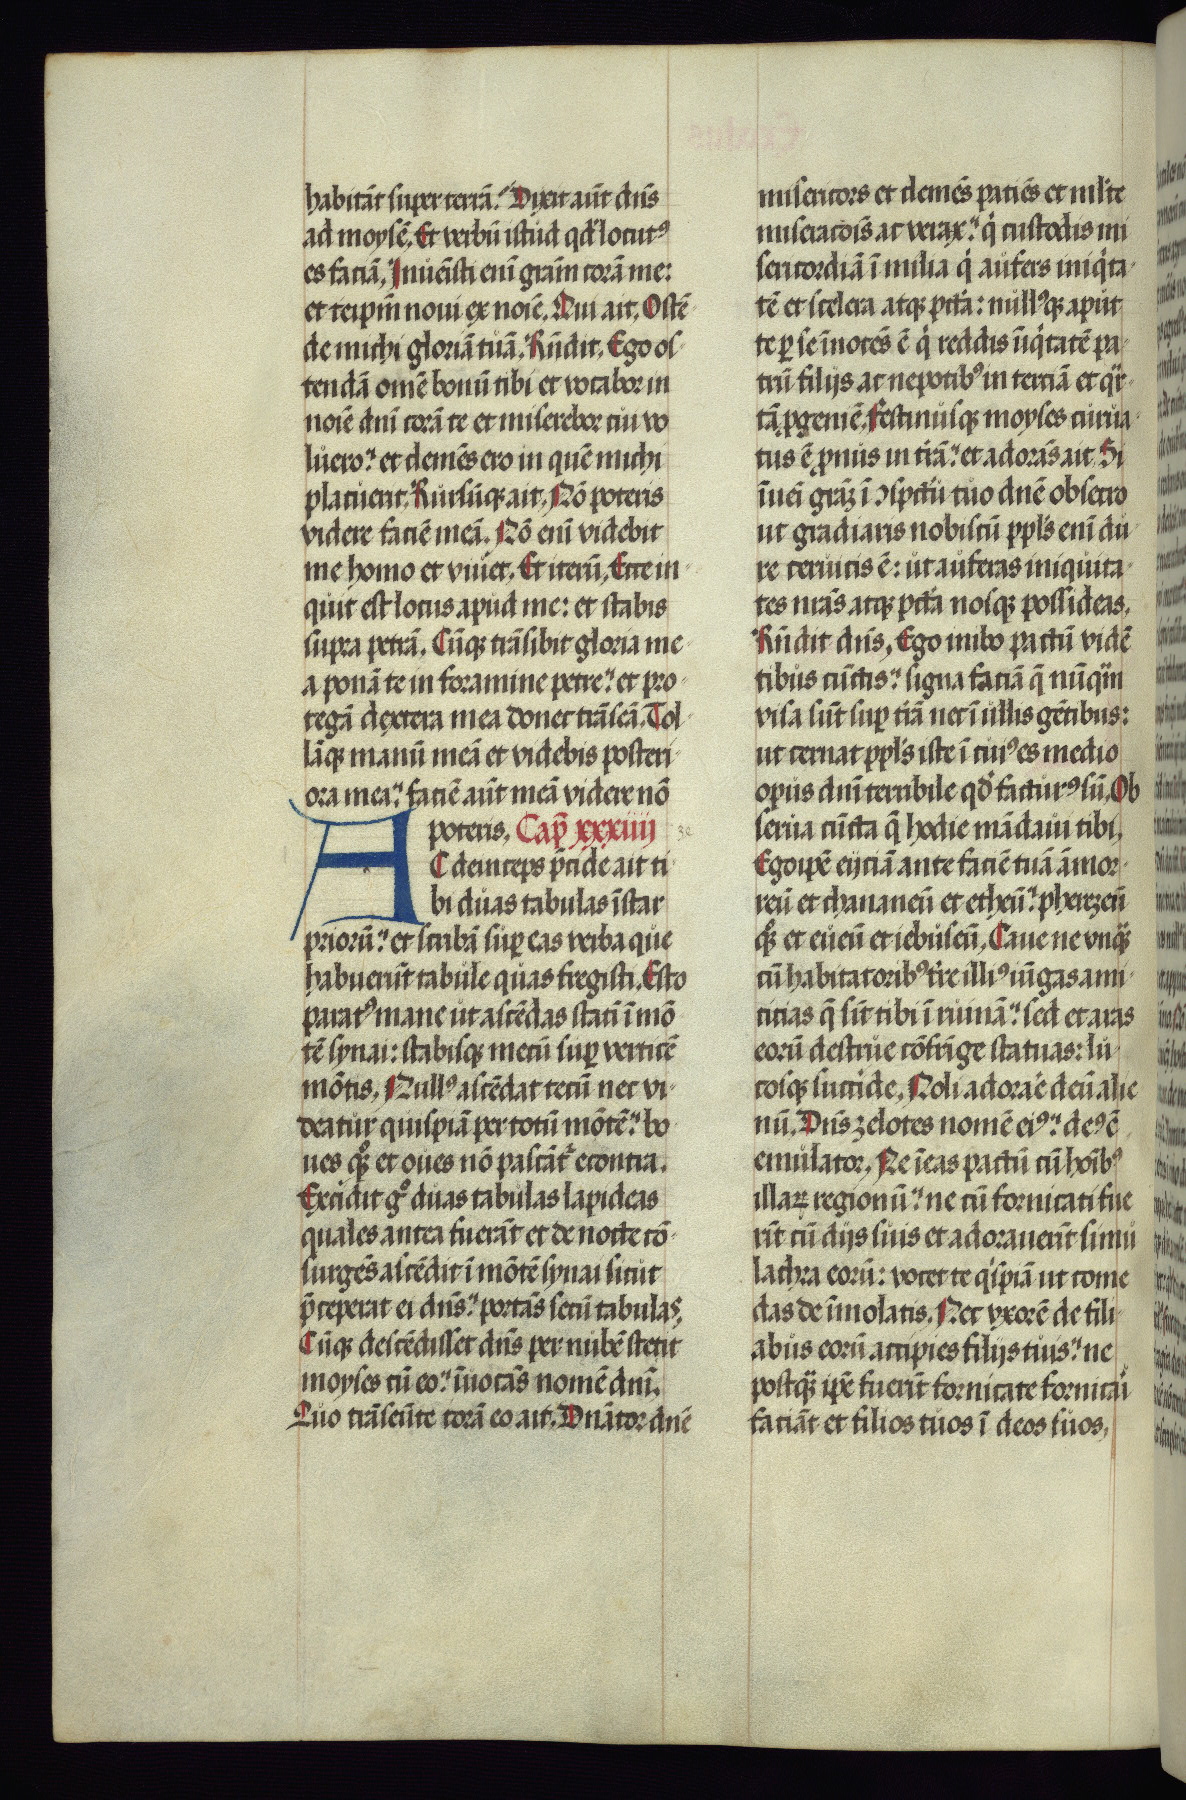 habitāt super terrā. Dixit aūt dn̄s
ad moysē. Et verbū istud qd̄ locut⁹
es faciā. Inuēisti enī grām corā me:
et teip̄m noui ex noīe. Qui ait. Ostē
de michi gloriā tuā. Rn̄dit. Ego os
tendā omē bonū tibi et vocabor in
noīe dnī corā te et miserebor cui vo
luero: et clemēs ero in quē michi
placuerit. Rursūq; ait. Nō poteris
videre faciē meā. Nō enī videbit
me homo et viuet. Et iterū. Ecce in
quit est locus apud me: et stabis
supra petrā. Cūq; trāsibit gloria me
a ponā te in foramine petre: et pro
tegā dextera mea donec trāseā. Tol
lāq; manū meā et videbis posteri
ora mea: faciē aūt meā videre nō
poteris. Cap̄ xxxiiij
AC deinceps p̄cide ait ti
bi duas tabulas īstar
priorū: et scribā suꝑ eas verba que
habuerūt tabule quas fregisti. Esto
parat⁹ mane ut ascēdas statī ī mō
tē synai: stabisq; mecū suꝑ verticē
mōtis. Null⁹ ascēdat tecū nec vi
deatur quispiā per totū mōtē: bo
ues qq̊ et oues nō pascāt᷑ econtra.
Excidit gͦ duas tabulas lapideas
quales antea fuerāt et de nocte cō
surgēs ascēdit ī mōtē synai sicut
p̄ceperat ei dn̄s: portās secū tabulas.
Cūq; descēdisset dn̄s per nubē stetit
moyses cū eo: īuocās nomē dnī.
Quo trāseūte corā eo ait. Dnātor dnē
misericors et clemēs patiēs et mlt̄e
miseratōis ac verax: q̇ custodis mi
sericordiā ī milia q̇ aufers iniq̇ta
tē et scelera atq; pctā: null⁹q; aput
te ꝑ se īnocēs ē q̇ reddis īiq̇tatē pa
trū filijs ac nepotib⁹ in terciā et q̈r
tā ꝓgeniē. Festinusq; moyses curua
tus ē ꝓnus in trā: et adorās ait. Si
īueī grāz ī ɔspctū tuo dnē obsecro
ut gradiaris nobiscū ppl̄s enī du
re ceruicis ē: ut auferas iniquita
tes nrās atq; pctā nosq; possideas.
Rn̄dit dn̄s. Ego inibo pactū vidē
tibus cūctis: signa faciā q̄ nūq̈m
visa sūt suꝑ trā nec ī ullis gētibus:
ut cernat ppl̄s iste ī cui⁹ es medio
opus dnī terribile qd̓ factur⁹ sū. Ob
serua cūcta q̄ hodie mādaui tibi.
Ego ip̄e eijciā ante faciē tuā āmor
reū et chananeū et etheū: pherezeū
qq̊ et eueū et iebuseū. Caue ne vnq̈
cū habitatorib⁹ tr̄e illi⁹ iūgas ami
citias q̄ sīt tibi ī ruinā: sed et aras
eorū destrue cōfrīge statuas: lu
cosq; succide. Noli adorae deū alie
nū. Dn̄s zelotes nomē ei⁹: de⁹ ē
emulator. Ne īeas pactū cū hoīb⁹
illaꝝ regionū: ne cū fornicati fue
rīt cū dijs suis et adorauerīt simu
lachra eorū: vocet te q̇spiā ut come
das de īmolatis. Nec vxorē de fili
abus eorū accipies filijs tuis: ne
postq̈ ip̄e fuerīt fornicate fornicāi
faciāt et filios tuos ī deos suos.